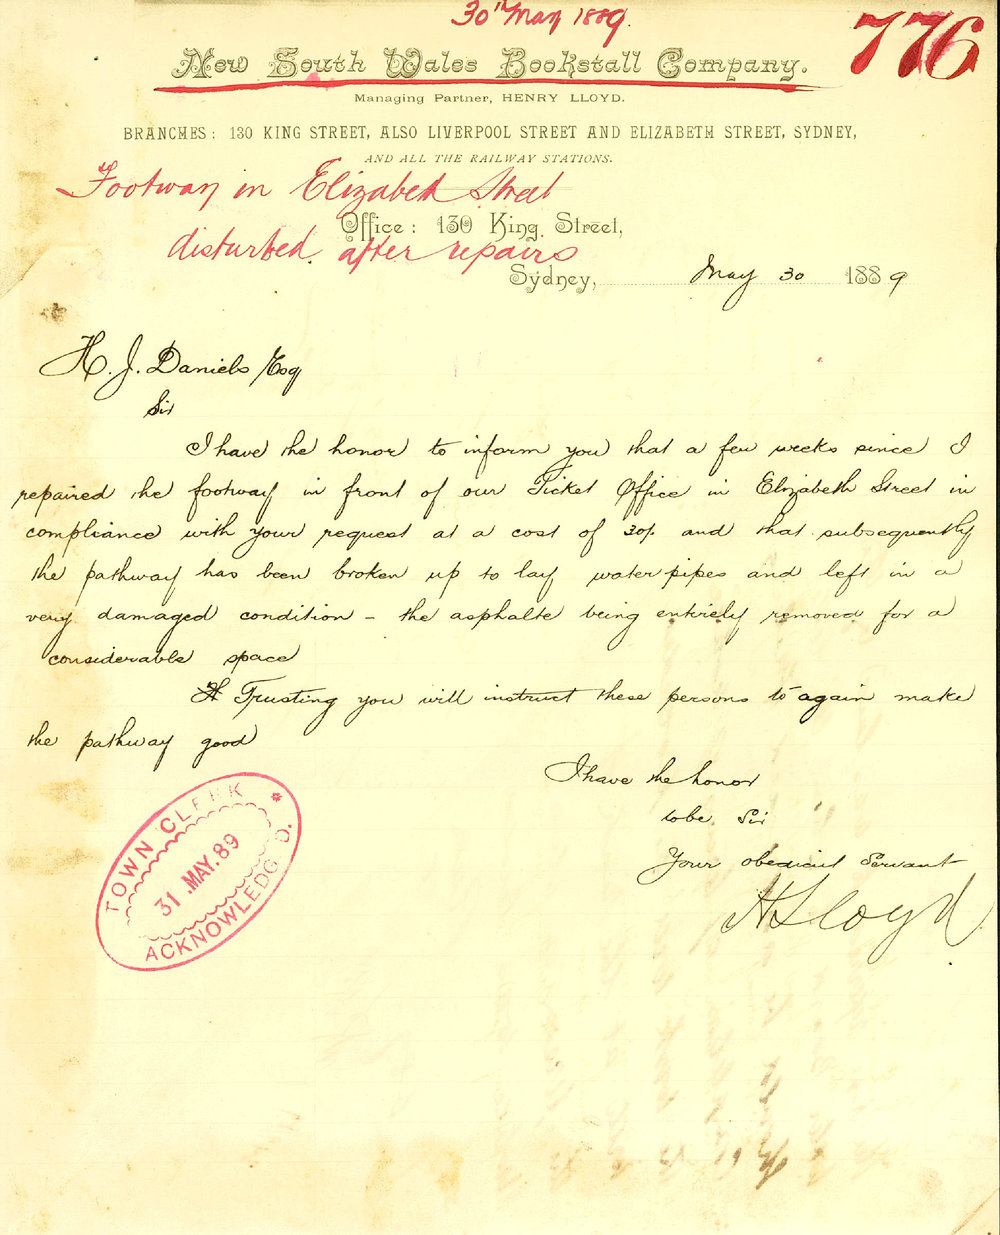 30th May 1889.
776
New South Wales Bookstall Company.
Managing Partner, HENRY LLOYD.
BRANCHES: 130 KING STREET, ALSO LIVERPOOL STREET AND ELIZABETH STREET, SYDNEY,
AND ALL THE RAILWAY STATIONS.
Footway in Elizabeth Street
Office: 130 King Street,
disturbed after repairs
Sydney, May 30 1889
H. J. Daniels Esq
Sir
I have the honor to inform you that a few weeks since I
repaired the footway in front of our Ticket Office in Elizabeth Street in
compliance with your request at a cost of 30/- and that subsequently
the pathway has been broken up to lay water pipes and left in a
very damaged condition - the asphalte being entirely removed for a
considerable space
Trusting you will instruct these persons to again make
the pathway good
I have the honor
to be Sir
Your obedient Servant
H Lloyd
TOWN CLERK
31 .MAY.89
ACKNOWLEDG'D.